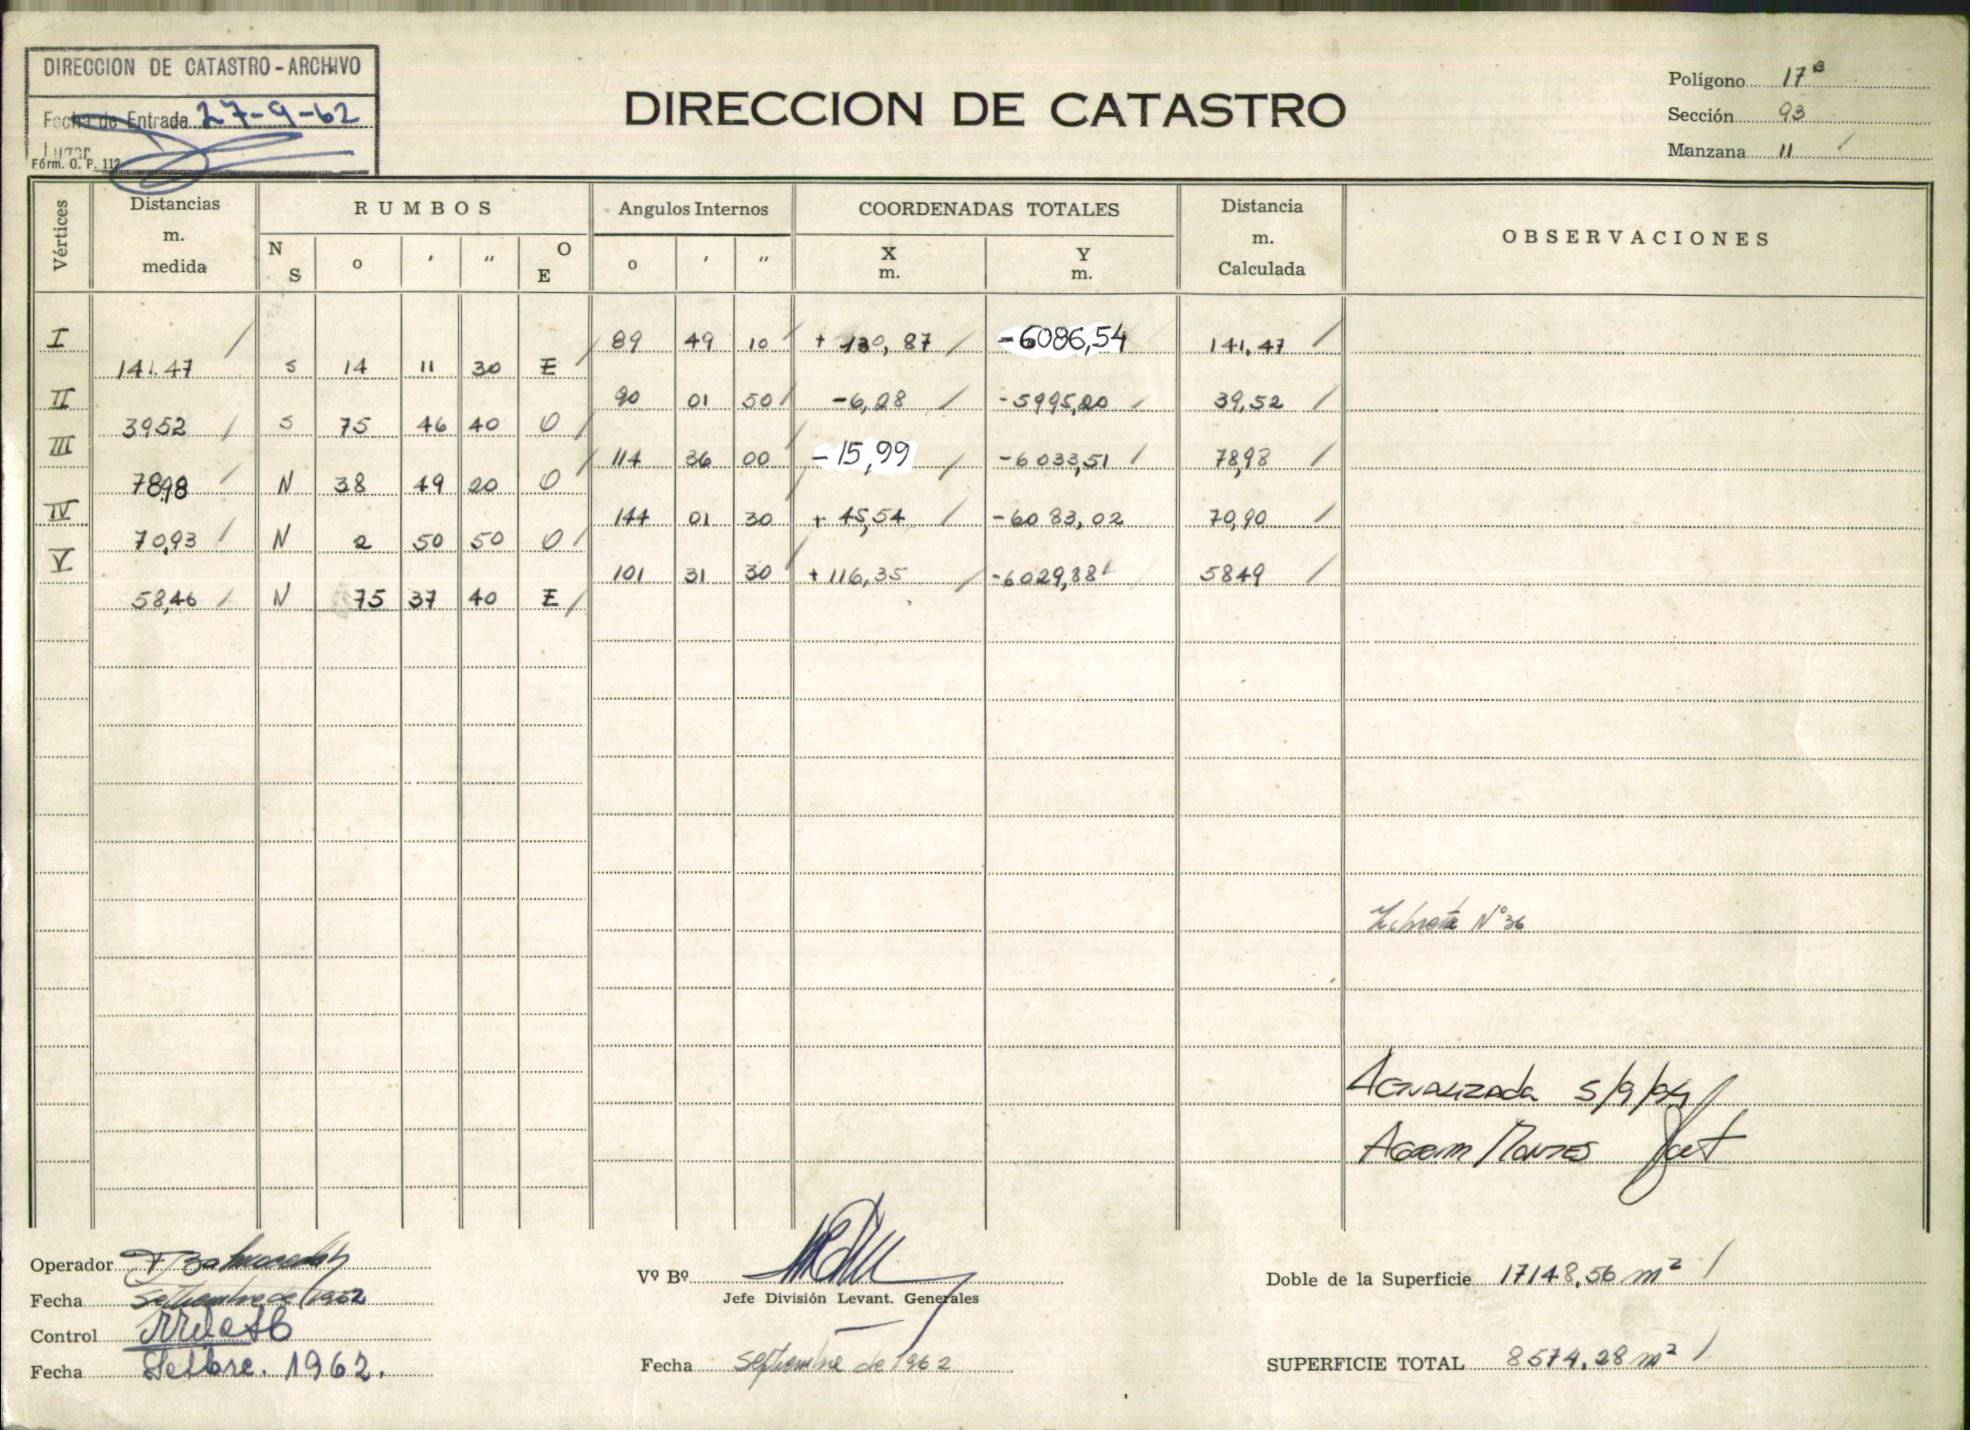 DIRECCION DE CATASTRO - ARCHIVO
Fecha de Entrada 27-9-62
Lugar
Fórm. O. P. 112
DIRECCION DE CATASTRO
Polígono 17 B
Sección 93
Manzana 11
Vértices Distancias m. medida RUMBOS Angulos Internos COORDENADAS TOTALES Distancia m. Calculada OBSERVACIONES
N S o ′ ″ O E o ′ ″ X m. Y m.
I 89 49 10 + 130,87 -6086,54 141,47
141.47 S 14 11 30 E
II 90 01 50 -6,28 -5995,20 39,52
3952 S 75 46 40 O
III 114 36 00 -15,99 -6033,51 78,98
78,98 N 38 49 20 O
IV 144 01 30 + 45,54 -6083,02 70,90
70,93 N 2 50 50 O
V 101 31 30 + 116,35 -6029,88 5849
58,46 N 75 37 40 E
Libreta Nº 36
Actualizada 5/9/94
Agrim Montes
Operador
Fecha Septiembre de 1962
Control
Fecha Setbre. 1962.
Vº Bº
Jefe División Levant. Generales
Fecha Septiembre de 1962
Doble de la Superficie 17148,56 m²
SUPERFICIE TOTAL 8574,28 m²